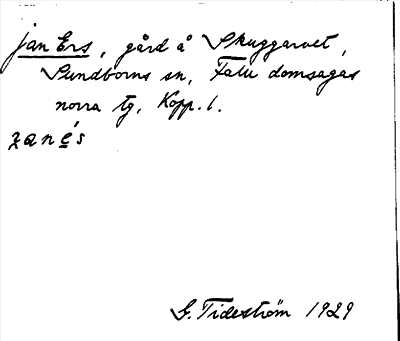 Jan Ers, gård å Skuggarvet,
Sundborns sn, Falu domsagas
norra tg, Kopp. l.
ʒanés
G. Tideström 1929